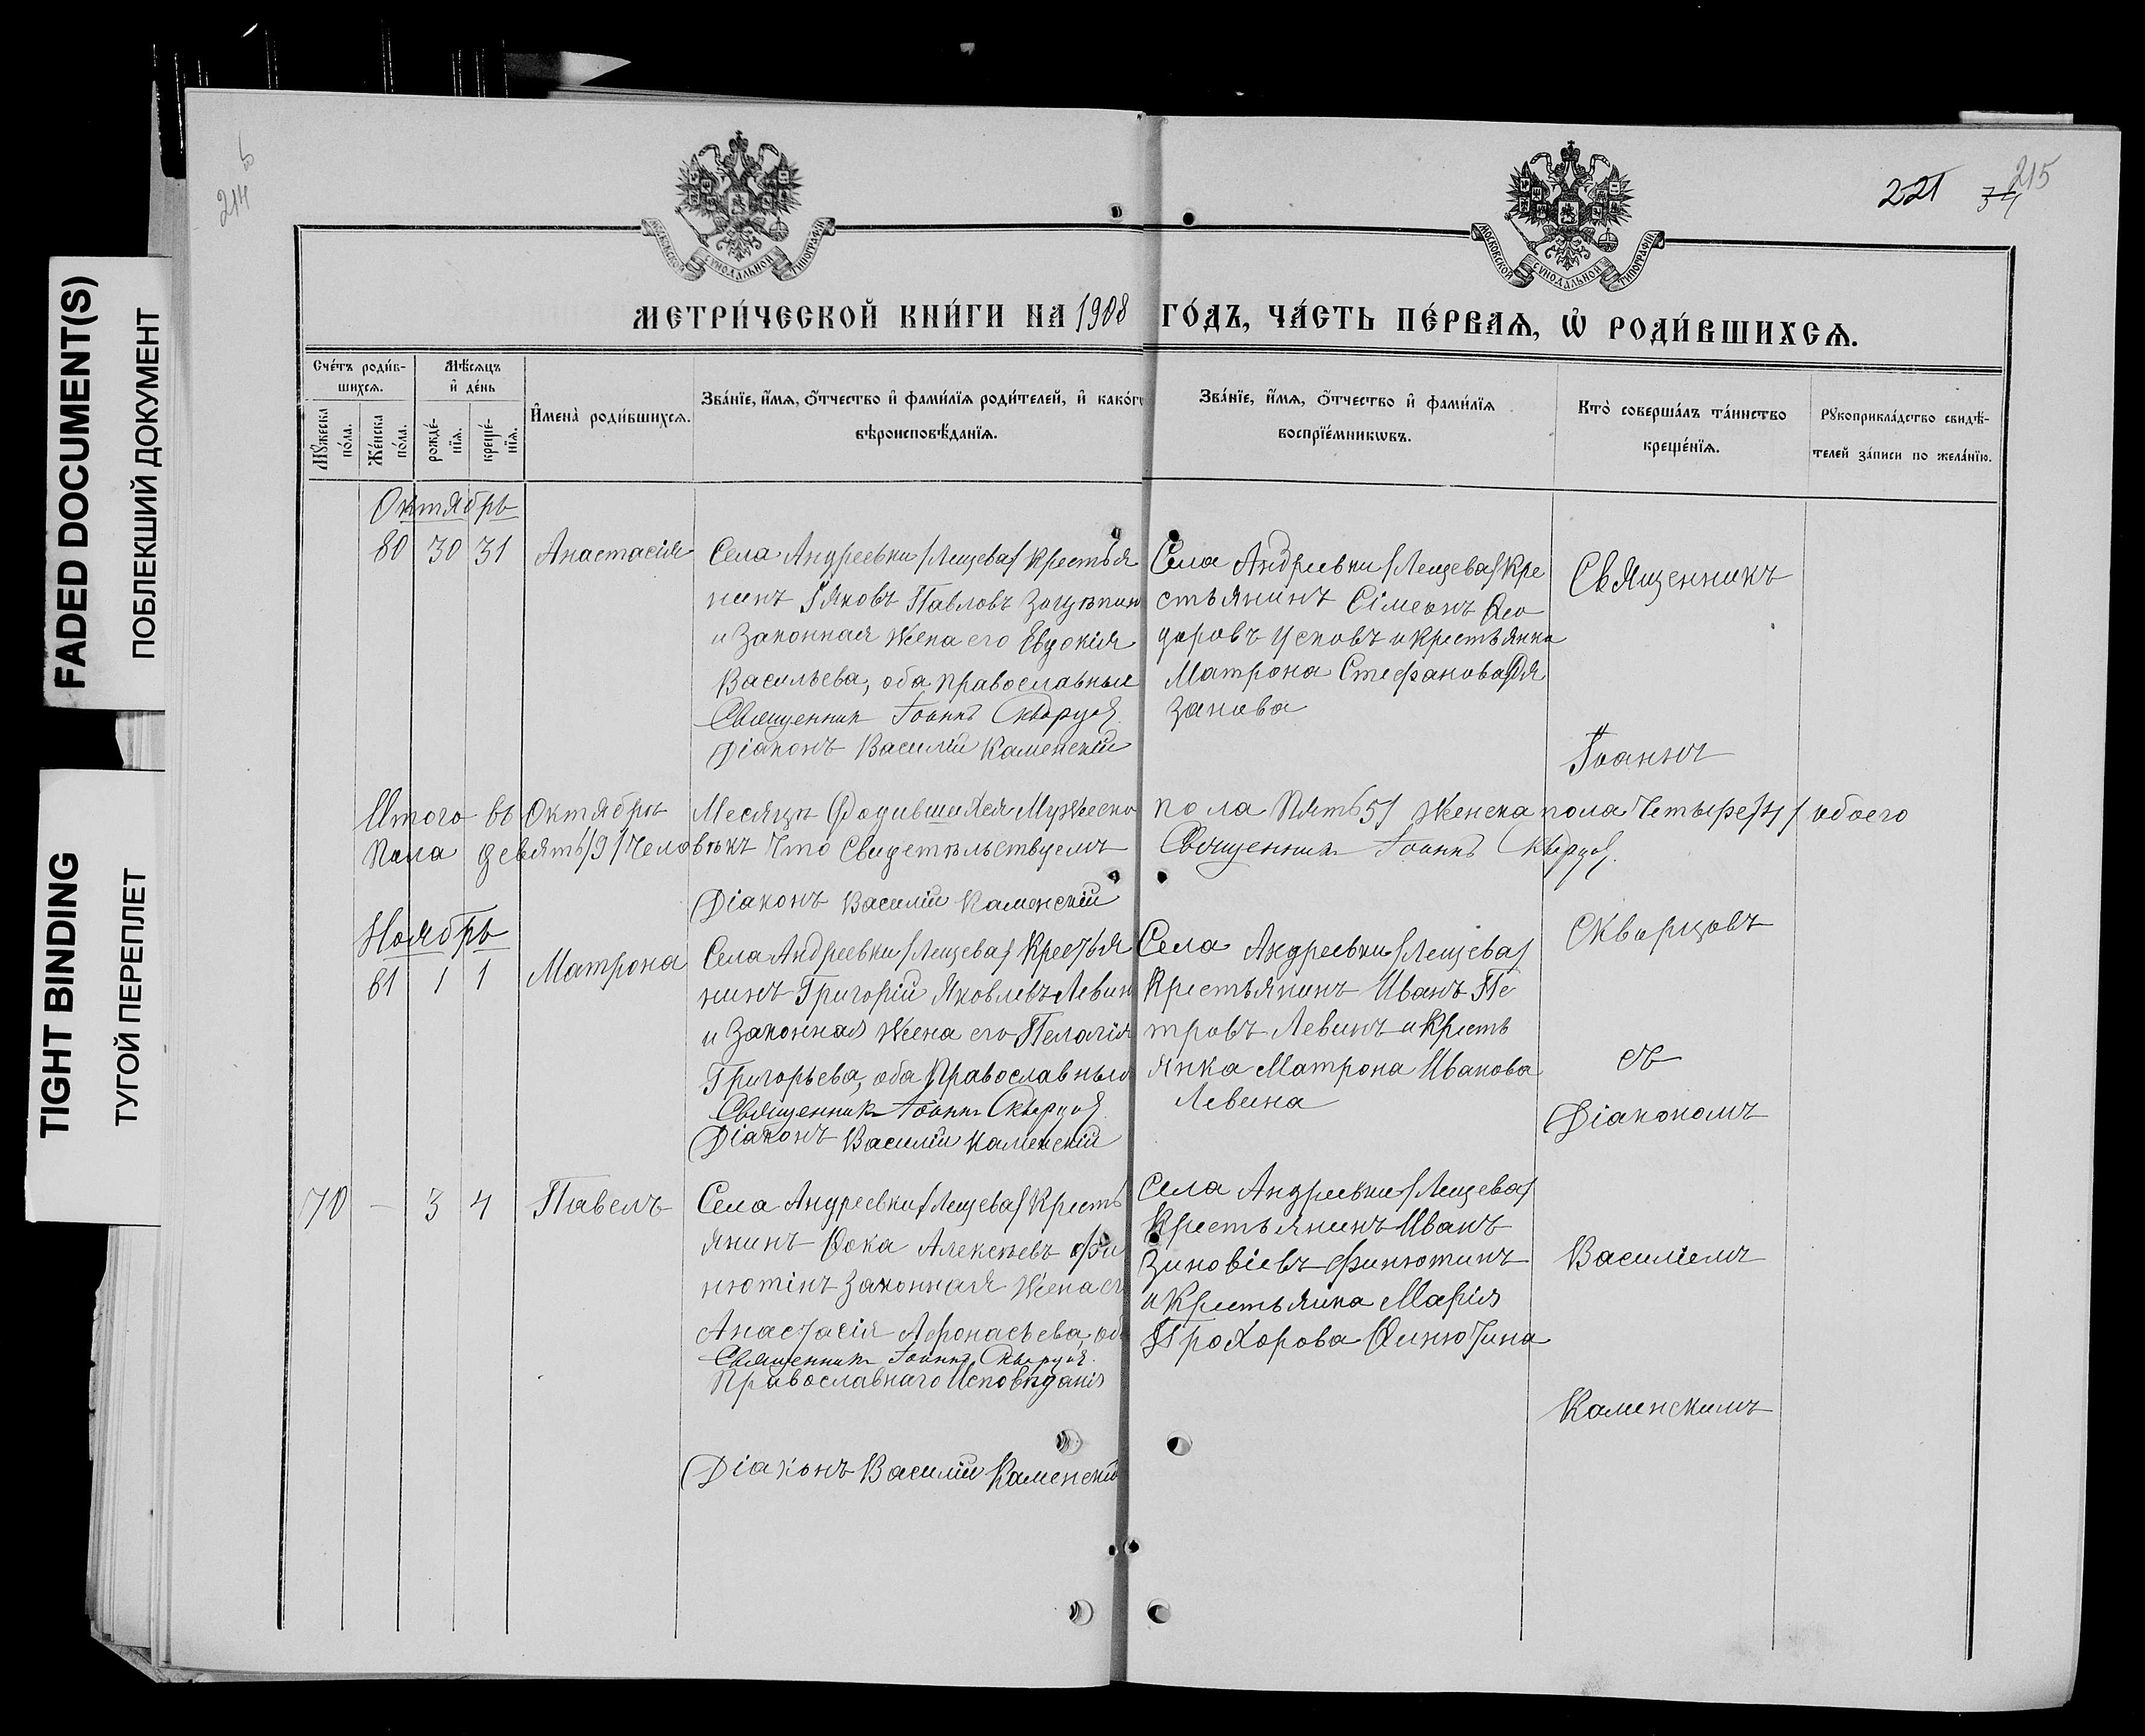 FADED DOCUMENT(S)
ПОБЛЕКШИЙ ДОКУМЕНТ
TIGHT BINDING
ТУГОЙ ПЕРЕПЛЕТ
214
221
34
215
МОСКОВСКОЙ СѴНОДАЛЬНОЙ ТИПОГРАФІИ
МОСКОВСКОЙ СѴНОДАЛЬНОЙ ТИПОГРАФІИ
МЕТРИ́ЧЕСКОЙ КНИ́ГИ НА 1908 ГО́ДЪ, ЧА́СТЬ ПЕ́РВАѦ, Ѡ҆ РОДИ́ВШИХСѦ.
Сче́тъ роди́в-
шихсѧ.
Мꙋжеска по́ла.
Же́нска по́ла.
Мѣ́сѧцъ
и҆ де́нь
рожде́-
нїѧ.
креще́-
нїѧ.
И҆мена̀ роди́вшихсѧ.
Зва́нїе, и҆́мѧ, о҆́тчество и҆ фами́лїѧ роди́телей, и҆ како́гѡ
вѣроисповѣ́данїѧ.
Зва́нїе, и҆́мѧ, о҆́тчество и҆ фами́лїѧ
воспрїе́мникѡвъ.
Кто̀ соверша́лъ та́инство
креще́нїѧ.
Рꙋкоприкла́дство свидѣ́-
телей за́писи по жела́нїю.
Октябрь
80 30 31 Анастасія
Села Андреевки /Лещева/ Крестья
нинъ Іяковъ Павловъ
и Законная Жена его Евдокія
Васильева, оба православные
Священник Іоаннъ Скворцов
Діаконъ Василій Каменскій
Села Андреевки /Лещева/ Кре
стьянинъ Сімеонъ Ѳео
доровъ Усковъ и Крестьянка
Матрона Стефанова Ря
занова
Священникъ
Іоаннъ
Итого въ Октябрѣ Месяцѣ Родившихся Мужеско пола Пять/5/ Женска пола Четыре/4/ обоего
Пола девять/9/ Человѣкъ Что Свидетѣльствуемъ Священникъ Іоаннъ Скворцов.
Діаконъ Василій Каменскій
Ноябрь
81 1 1 Матрона
Села Андреевки /Лещева/ Крестья
нинъ Григорій Яковлевъ Левин
и Законная Жена его Пелагія
Григорьева, оба Православные
Священникъ Іоаннъ Скворцов
Діаконъ Василій Каменскій
Села Андреевки /Лещева/
Крестьянинъ Иванъ Пе
тровъ Левинъ и Кресть
янка Матрона Иванова
Левина
Скворцовъ
съ
Діакономъ
70 — 3 4 Павелъ
Села Андреевки /Лещева/ Кресть
янинъ Фока Алексѣевъ Фи
нютінъ Законная Жена ег
Анастасія Афонасьева, оба
Священникъ Іоаннъ Скворцов.
Православнаго Исповѣданія
Діаконъ Василій Каменскій
Села Андреевки /Лещева/
Крестьянинъ Иванъ
Зиновіевъ Финютинъ
и Крестьянка Марія
Прохорова Финютина
Василіемъ
Каменскимъ